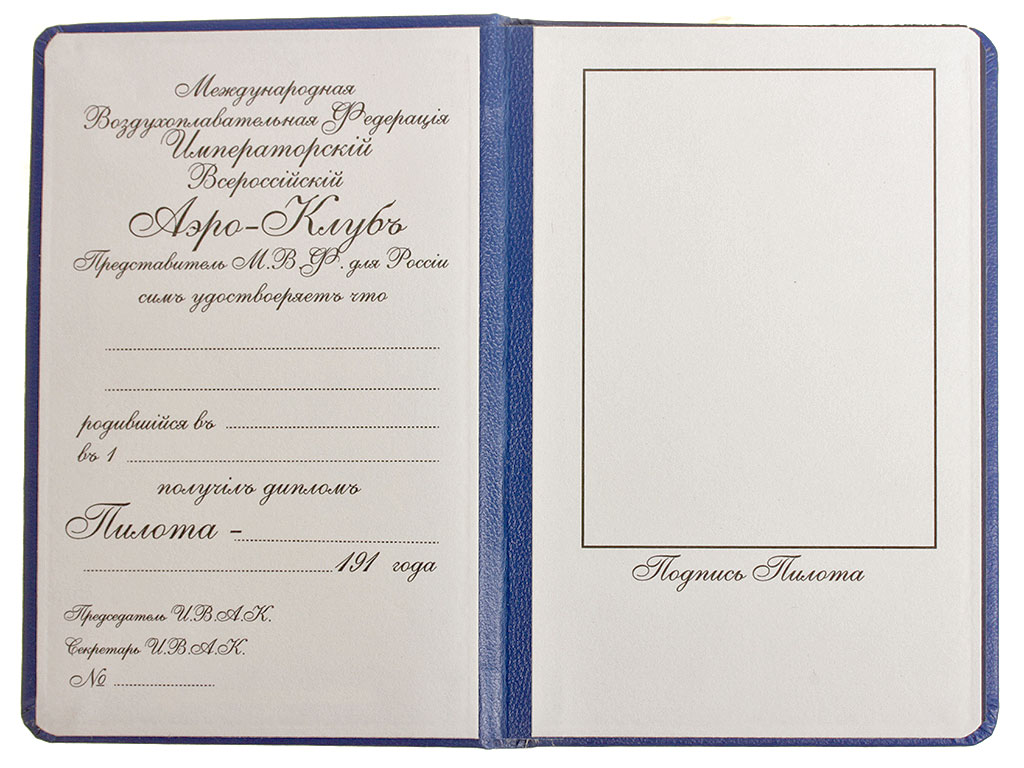 Международная
Воздухоплавательная Федерація
Императорскій
Всероссійскій
Аэро-Клубъ
Представитель М.В.Ф. для Россіи
симъ удоствоеряетъ что
родившійся въ
въ 1
получілъ дипломъ
Пилота -
191 года
Председатель И.В.А.К.
Секретарь И.В.А.К.
№
Подпись Пилота